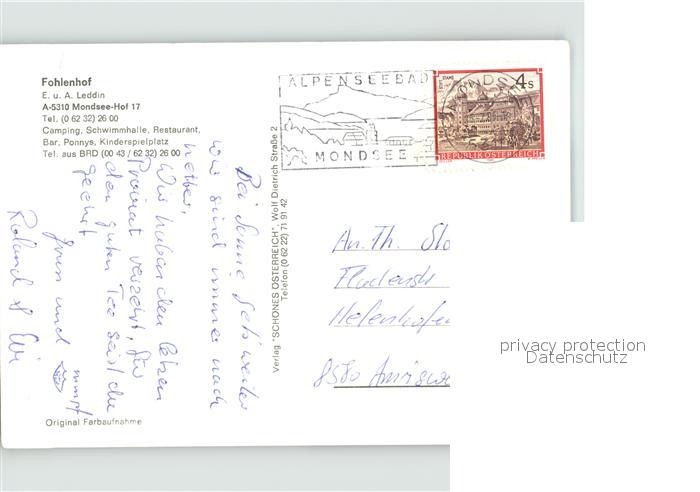 Fohlenhof
E. u. A. Leddin
A-5310 Mondsee-Hof 17
Tel. (0 62 32) 26 00
Camping, Schwimmhalle, Restaurant,
Bar, Ponnys, Kinderspielplatz
Tel. aus BRD (00 43 / 62 32) 26 00
ALPENSEEBAD
MONDSEE
4 S
REPUBLIK ÖSTERREICH
Bei Sonne geht's weiter
wir sind immer noch
Wir haben den letzten
Proviant verzehrt, für
den guten Tee seist du
geehrt
Gruss und
Roland & Evi
Verlag "SCHÖNES ÖSTERREICH", Wolf Dietrich Straße 2
Telefon (0 62 22) 71 91 42
An. Th.
8580
Original Farbaufnahme
privacy protection
Datenschutz